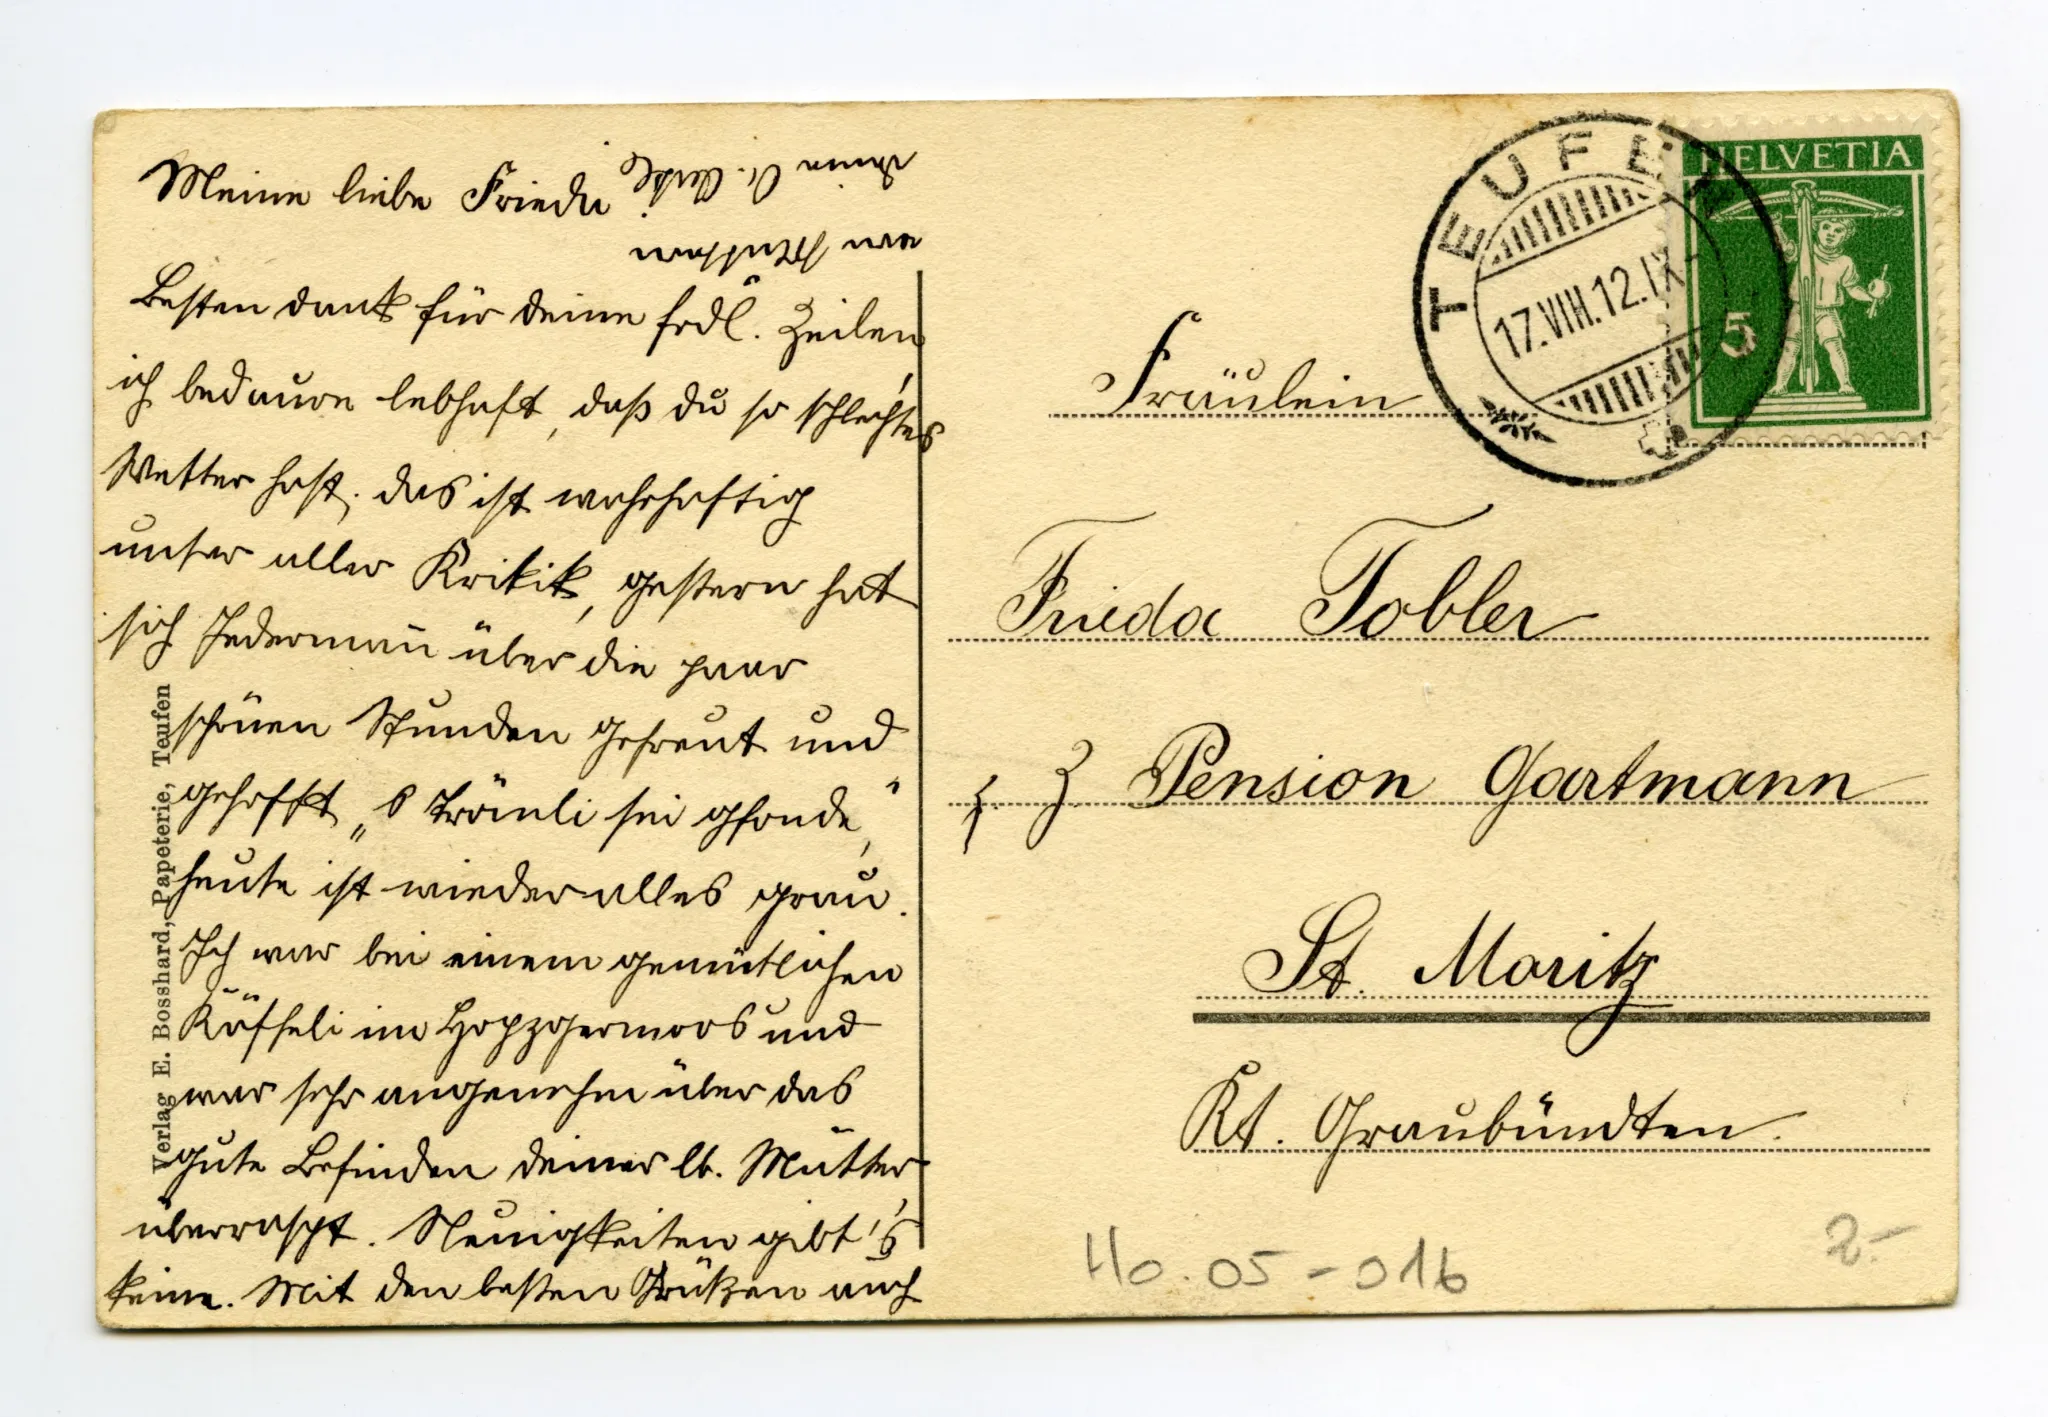 Meine liebe Frieda!
Besten dank für deine frdl. Zeilen,
ich bedaure lebhaft, daß du so schlechtes
Wetter hast, das ist wahrhaftig
unser aller Kritik, gestern hat
sich Jedermañ über die paar
schönen Stunden gefreut und
gehofft „s Trömli sei gfonde",
heute ist wieder alles grau.
Ich war bei einem gemütlichen
Käffeli im
und
war sehr angenehm über das
gute Befinden deiner lb. Mutter
überrascht. Neuigkeiten gibt's
keine. Mit den besten Grüßen auch
von
deine
Verlag E. Bosshard, Papeterie, Teufen
TEUFEN
17.VIII.12.IX-
HELVETIA
5
Fräulein
Frieda Tobler
z. Z. Pension Gartmann
St. Moritz
Kt. Graubündten.
Ho.05-016
2.-